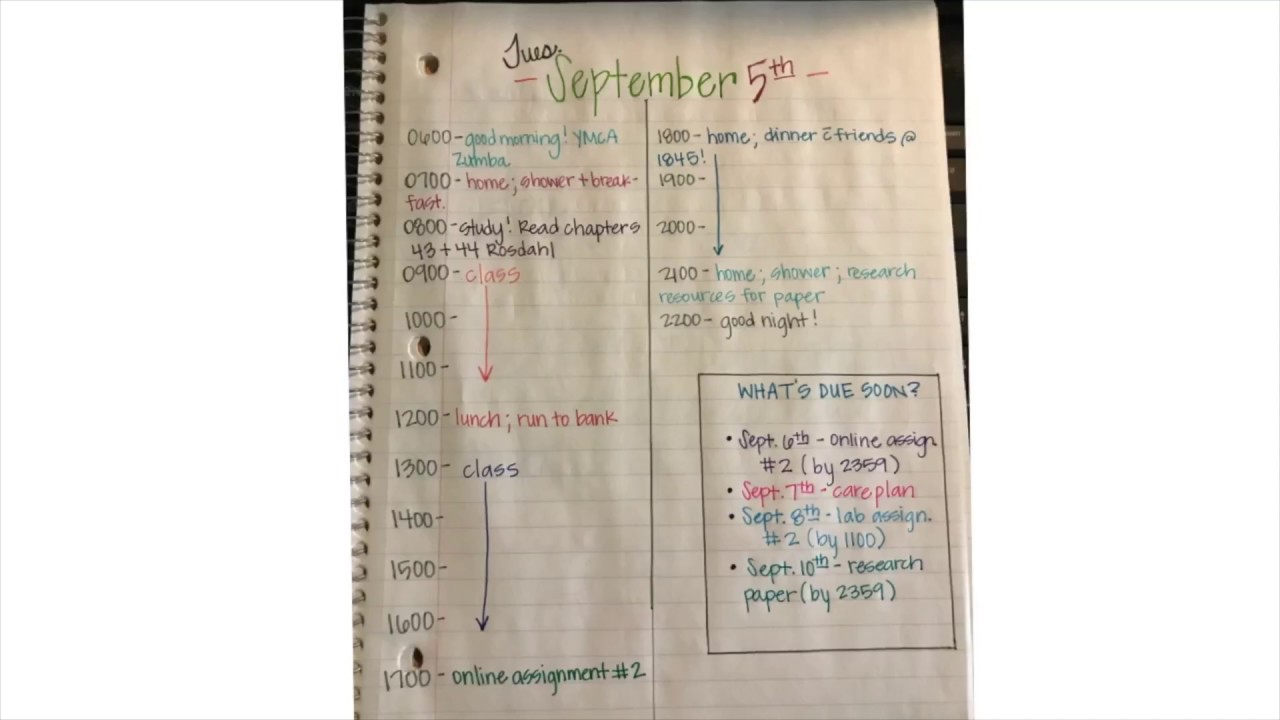 Tues.
- September 5th -
0600 - good morning! YMCA
Zumba
0700 - home; shower + break-
fast.
0800 - study! Read chapters
43 + 44 Rosdahl
0900 - class
1000 -
1100 -
1200 - lunch; run to bank
1300 - class
1400 -
1500 -
1600 -
1700 - online assignment #2
1800 - home; dinner c̄ friends @
1845!
1900 -
2000 -
2100 - home; shower; research
resources for paper
2200 - good night!
WHAT'S DUE SOON?
• Sept. 6th - online assign.
#2 (by 2359)
• Sept. 7th - care plan
• Sept. 8th - lab assign.
#2 (by 1100)
• Sept. 10th - research
paper (by 2359)